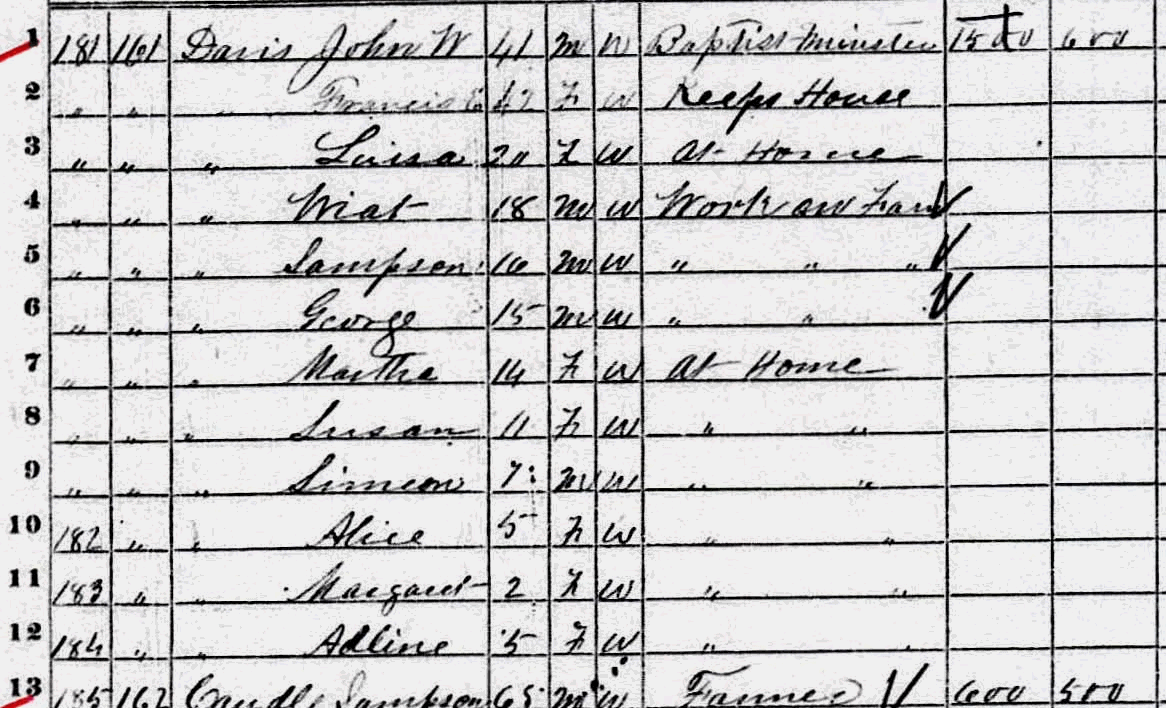 1 181 161 Davis John W 41 M W Baptist Minister 1500 600
2 " " " Francis E 42 F W Keeps House
3 " " " Luisa 20 F W At Home
4 " " " Wiat 18 M W Work on Farm
5 " " " Sampson 16 M W " " "
6 " " " George 15 M W " "
7 " " " Martha 14 F W At Home
8 " " " Susan 11 F W " "
9 " " " Simeon 7 M W " "
10 182 " " Alice 5 F W " "
11 183 " " Margaret 2 F W " "
12 184 " " Adline 5 F W "
13 185 162 Caudle Sampson 65 M W Farmer 600 500